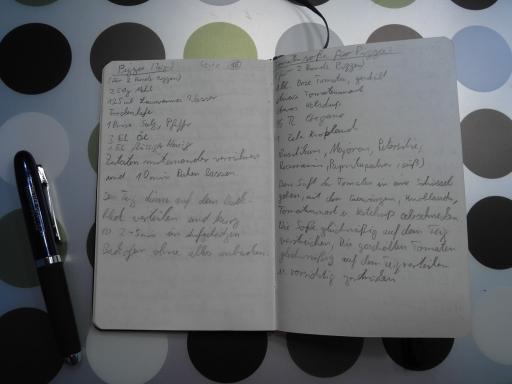 Pizza Teig
(für 2 Runde Pizzen)
250g Mehl
125ml Lauwarmes Wasser
Trockenhefe
1 Prise Salz, Pfeffer
2 EL Öl
2 EL flüssiger Honig
Zutaten miteinander verrühren
und 10min Ruhen lassen
Den Teig dünn auf dem Back-
blech verteilen und kurz
2-5min im
Backofen ohne alles anbacken.
Tomatensoße für Pizza
(für 2 Runde Pizzen)
1 Dose Tomaten, geschält
etwas Tomatenmark
etwas Ketchup
TL Oregano
1 Zehe Knoblauch
Basilikum, Majoran, Petersilie,
Rosmarin, Paprikapulver (süß)
Den Saft der Tomaten in eine Schüssel
geben, mit den Gewürzen, Knoblauch,
Tomatenmark u. Ketchup abschmecken
Die Soße gleichmäßig auf dem Teig
verstreichen, Die geschälten Tomaten
gleichmäßig auf dem Teig verteilen
u. vorsichtig zerdrücken